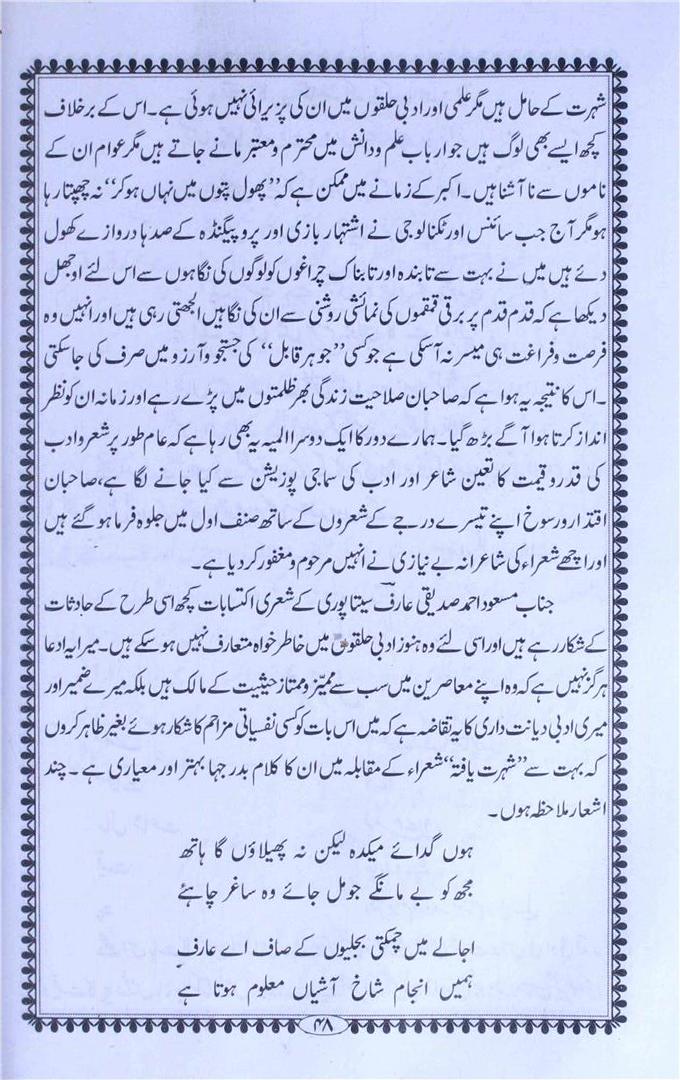 شہرت کے حامل ہیں مگر علمی اور ادبی حلقوں میں ان کی پزیرائی نہیں ہوئی ہے۔ اس کے برخلاف
کچھ ایسے بھی لوگ ہیں جو ارباب علم و دانش میں محترم و معتبر مانے جاتے ہیں مگر عوام ان کے
ناموں سے نا آشنا ہیں۔ اکبر کے زمانے میں ممکن ہے کہ ”پھول پتوں میں نہاں ہو کر“ نہ چھپتا رہا
ہو مگر آج جب سائنس اور ٹکنالوجی نے اشتہار بازی اور پروپیگنڈہ کے صدہا دروازے کھول
دئے ہیں میں نے بہت سے تابندہ اور تابناک چراغوں کو لوگوں کی نگاہوں سے اس لئے اوجھل
دیکھا ہے کہ قدم قدم پر برقی قمقموں کی نمائشی روشنی سے ان کی نگاہیں الجھتی رہی ہیں اور انہیں وہ
فرصت و فراغت ہی میسر نہ آسکی ہے جو کسی ”جوہر قابل“ کی جستجو و آرزو میں صرف کی جاسکتی
۔ اس کا نتیجہ یہ ہوا ہے کہ صاحبان صلاحیت زندگی بھر ظلمتوں میں پڑے رہے اور زمانہ ان کو نظر
انداز کرتا ہوا آگے بڑھ گیا۔ ہمارے دور کا ایک دوسرا المیہ یہ بھی رہا ہے کہ عام طور پر شعر و ادب
کی قدر و قیمت کا تعین شاعر اور ادب کی سماجی پوزیشن سے کیا جانے لگا ہے، صاحبان
اقتدار و رسوخ اپنے تیسرے درجے کے شعروں کے ساتھ صنف اول میں جلوہ فرما ہو گئے ہیں
اور اچھے شعراء کی شاعرانہ بے نیازی نے انہیں مرحوم و مغفور کر دیا ہے۔
جناب مسعود احمد صدیقی عارفؔ سیتاپوری کے شعری اکتسابات کچھ اسی طرح کے حادثات
کے شکار رہے ہیں اور اسی لئے وہ ہنوز ادبی حلقوں میں خاطر خواہ متعارف نہیں ہو سکے ہیں۔ میرا یہ ادعا
ہرگز نہیں ہے کہ وہ اپنے معاصرین میں سب سے ممیّز و ممتاز حیثیت کے مالک ہیں بلکہ میرے ضمیر اور
میری ادبی دیانت داری کا یہ تقاضہ ہے کہ میں اس بات کو کسی نفسیاتی مزاحم کا شکار ہوئے بغیر ظاہر کروں
کہ بہت سے ”شہرت یافتہ“ شعراء کے مقابلہ میں ان کا کلام بدرجہا بہتر اور معیاری ہے ۔ چند
اشعار ملاحظہ ہوں ۔
ہوں گدائے میکدہ لیکن نہ پھیلاؤں گا ہاتھ
مجھ کو بے مانگے جو مل جائے وہ ساغر چاہئے
اجالے میں چمکتی بجلیوں کے صاف اے عارفؔ
ہمیں انجام شاخ آشیاں معلوم ہوتا ہے
۴۸